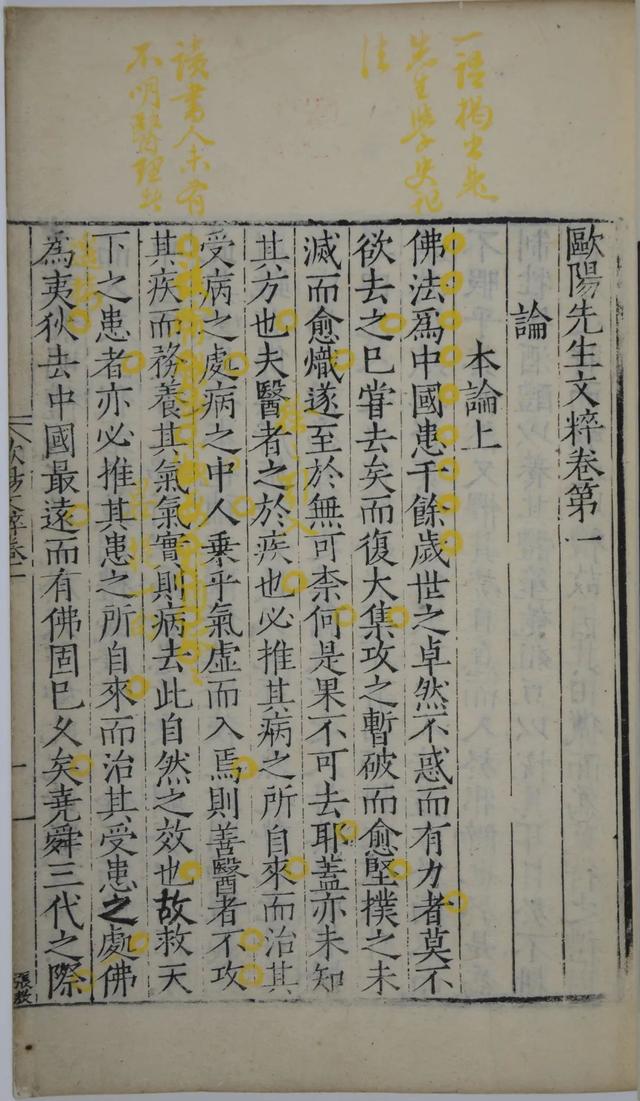 一語揭出是
先生學史記
法
讀書人未有
不明醫理者
歐陽先生文粹卷第一
論
本論上
佛法爲中國患千餘歲世之卓然不惑而有力者莫不
欲去之巳甞去矣而復大集攻之暫破而愈堅撲之未
滅而愈熾遂至於無可柰何是果不可去耶蓋亦未知
其方也夫醫者之於疾也必推其病之所自來而治其
受病之處病之中人乗乎氣虛而入焉則善醫者不攻
其疾而務養其氣氣實則病去此自然之效也故救天
下之患者亦必推其患之所自來而治其受患之處佛
為夷狄去中國最遠而有佛固巳乆矣堯舜三代之際